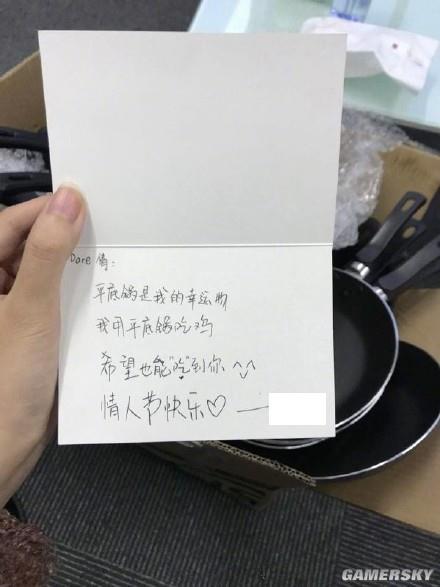 Dore 倩:
平底锅是我的幸运物
我用平底锅吃鸡
希望也能“吃”到你 ^_^
情人节快乐♡ —
GAMERSKY